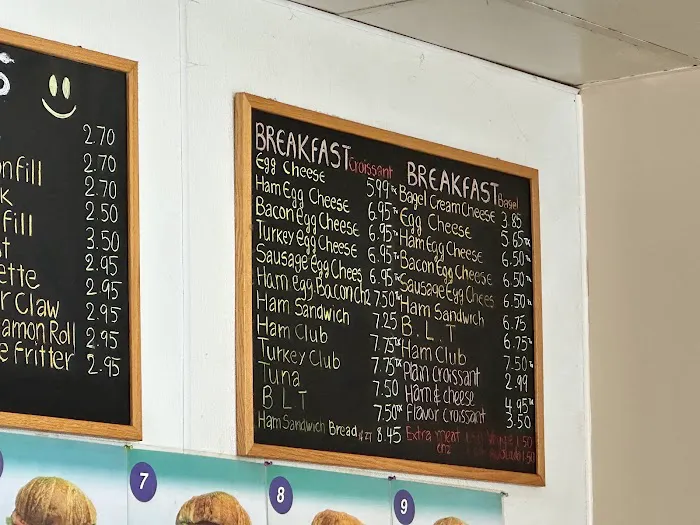 2.70
2.70
on fill 2.70
k 2.50
fill 3.50
t 2.95
ette 2.95
r Claw 2.95
amon Roll 2.95
e Fritter 2.95
BREAKFAST Croissant
Egg Cheese 5.99
Ham Egg Cheese 6.95
Bacon Egg Cheese 6.95
Turkey Egg Cheese 6.95
Sausage Egg Chees 6.95
Ham Egg Bacon chz 7.50
Ham Sandwich 7.25
Ham Club 7.75
Turkey Club 7.75
Tuna 7.50
B L T 7.50
Ham Sandwich Bread 8.45
BREAKFAST Bagel
Bagel Cream Cheese 3.85
Egg Cheese 5.65
Ham Egg Cheese 6.50
Bacon Egg Cheese 6.50
Sausage Egg Chees 6.50
Ham Sandwich 6.75
B.L.T 6.75
Ham Club 7.50
Plain Croissant 2.99
Ham & cheese 4.95
Flavor Croissant 3.50
Extra meat 1.50
chz 1.50
7
8
9